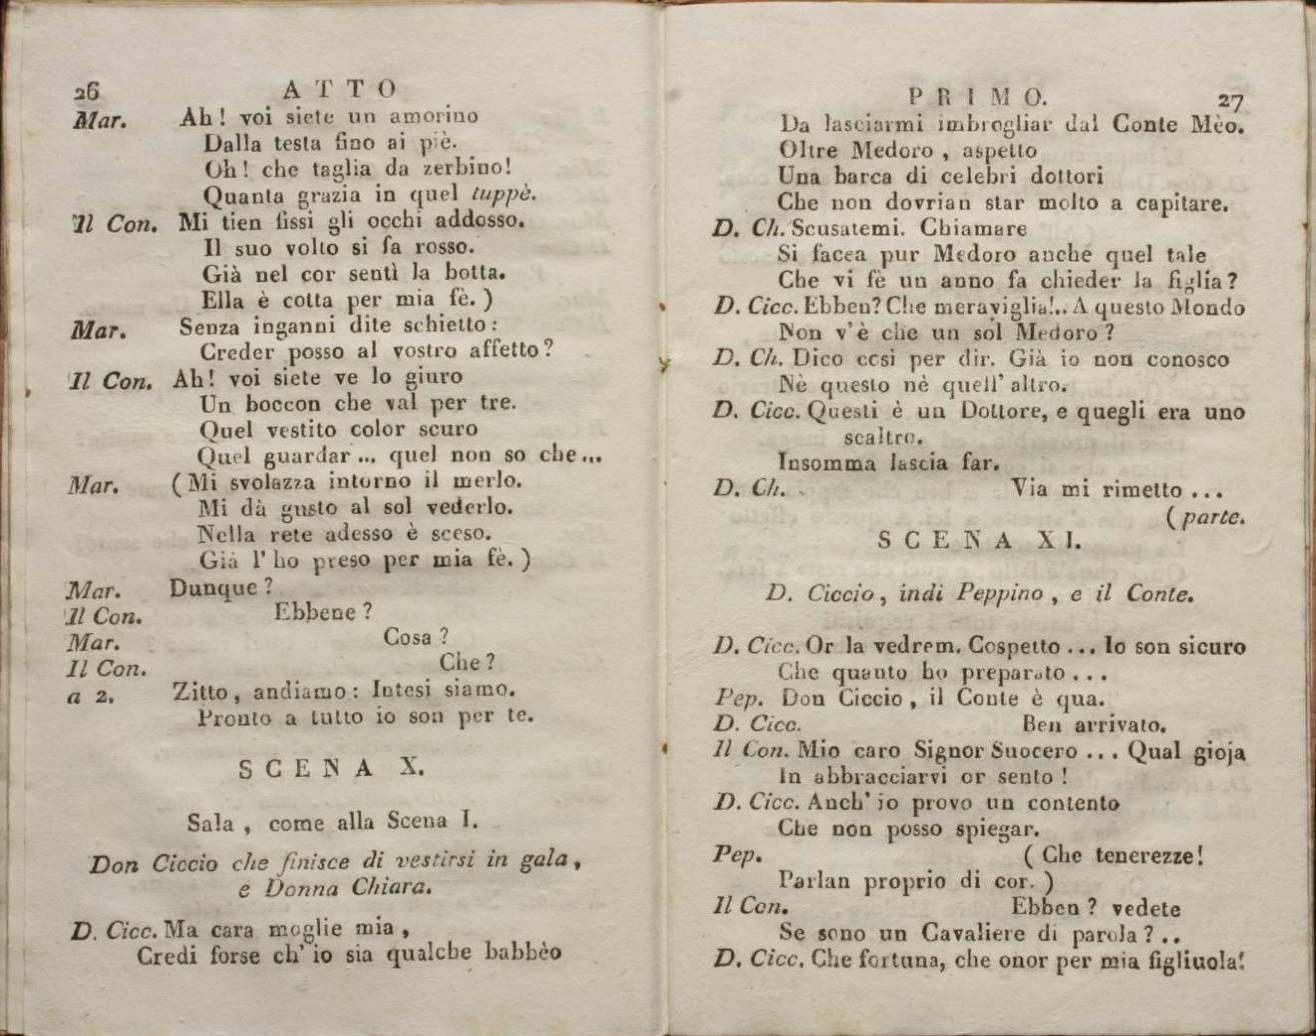 26 ATTO
Mar. Ah! voi siete un amorino
Dalla testa fino ai piè.
Oh! che taglia da zerbino!
Quanta grazia in quel tuppè.
Il Con. Mi tien fissi gli occhi addosso.
Il suo volto si fa rosso.
Già nel cor sentì la botta.
Ella è cotta per mia fè. )
Mar. Senza inganni dite schietto:
Creder posso al vostro affetto?
Il Con. Ah! voi siete ve lo giuro
Un boccon che val per tre.
Quel vestito color scuro
Quel guardar ... quel non so che...
Mar. ( Mi svolazza intorno il merlo.
Mi dà gusto al sol vederlo.
Nella rete adesso è sceso.
Già l'ho preso per mia fè. )
Mar. Dunque?
Il Con. Ebbene?
Mar. Cosa?
Il Con. Che?
a 2. Zitto, andiamo: Intesi siamo.
Pronto a tutto io son per te.
SCENA X.
Sala, come alla Scena I.
Don Ciccio che finisce di vestirsi in gala,
e Donna Chiara.
D. Cicc. Ma cara moglie mia,
Credi forse ch'io sia qualche babbèo
PRIMO. 27
Da lasciarmi imbrogliar dal Conte Mèo.
Oltre Medoro, aspetto
Una barca di celebri dottori
Che non dovrian star molto a capitare.
D. Ch. Scusatemi. Chiamare
Si facea pur Medoro anche quel tale
Che vi fè un anno fa chieder la figlia?
D. Cicc. Ebben? Che meraviglia!.. A questo Mondo
Non v'è che un sol Medoro?
D. Ch. Dico così per dir. Già io non conosco
Nè questo nè quell'altro.
D. Cicc. Questi è un Dottore, e quegli era uno
scaltro.
Insomma lascia far.
D. Ch. Via mi rimetto ...
( parte.
SCENA XI.
D. Ciccio, indi Peppino, e il Conte.
D. Cicc. Or la vedrem. Cospetto ... Io son sicuro
Che quanto ho preparato ...
Pep. Don Ciccio, il Conte è qua.
D. Cicc. Ben arrivato.
Il Con. Mio caro Signor Suocero ... Qual gioja
In abbracciarvi or sento!
D. Cicc. Anch'io provo un contento
Che non posso spiegar.
Pep. ( Che tenerezze!
Parlan proprio di cor. )
Il Con. Ebben? vedete
Se sono un Cavaliere di parola?..
D. Cicc. Che fortuna, che onor per mia figliuola!